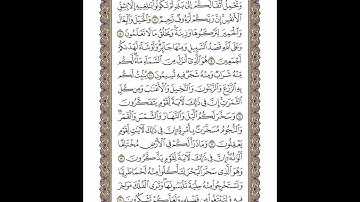 وَتَحْمِلُ أَثْقَالَكُمْ إِلَىٰ بَلَدٍ لَّمْ تَكُونُوا۟ بَٰلِغِيهِ إِلَّا بِشِقِّ
ٱلْأَنفُسِ إِنَّ رَبَّكُمْ لَرَءُوفٌ رَّحِيمٌ ۝ وَٱلْخَيْلَ وَٱلْبِغَالَ
وَٱلْحَمِيرَ لِتَرْكَبُوهَا وَزِينَةً وَيَخْلُقُ مَا لَا تَعْلَمُونَ ۝
وَعَلَى ٱللَّهِ قَصْدُ ٱلسَّبِيلِ وَمِنْهَا جَآئِرٌ وَلَوْ شَآءَ لَهَدَىٰكُمْ
أَجْمَعِينَ ۝ هُوَ ٱلَّذِىٓ أَنزَلَ مِنَ ٱلسَّمَآءِ مَآءً لَّكُم
مِّنْهُ شَرَابٌ وَمِنْهُ شَجَرٌ فِيهِ تُسِيمُونَ ۝ يُنۢبِتُ لَكُم
بِهِ ٱلزَّرْعَ وَٱلزَّيْتُونَ وَٱلنَّخِيلَ وَٱلْأَعْنَٰبَ وَمِن كُلِّ
ٱلثَّمَرَٰتِ إِنَّ فِى ذَٰلِكَ لَءَايَةً لِّقَوْمٍ يَتَفَكَّرُونَ ۝
وَسَخَّرَ لَكُمُ ٱلَّيْلَ وَٱلنَّهَارَ وَٱلشَّمْسَ وَٱلْقَمَرَ
وَٱلنُّجُومُ مُسَخَّرَٰتٌۢ بِأَمْرِهِۦٓ إِنَّ فِى ذَٰلِكَ لَءَايَٰتٍ لِّقَوْمٍ
يَعْقِلُونَ ۝ وَمَا ذَرَأَ لَكُمْ فِى ٱلْأَرْضِ مُخْتَلِفًا
أَلْوَٰنُهُۥٓ إِنَّ فِى ذَٰلِكَ لَءَايَةً لِّقَوْمٍ يَذَّكَّرُونَ ۝
وَهُوَ ٱلَّذِى سَخَّرَ ٱلْبَحْرَ لِتَأْكُلُوا۟ مِنْهُ لَحْمًا طَرِيًّا
وَتَسْتَخْرِجُوا۟ مِنْهُ حِلْيَةً تَلْبَسُونَهَا وَتَرَى ٱلْفُلْكَ مَوَاخِرَ
فِيهِ وَلِتَبْتَغُوا۟ مِن فَضْلِهِۦ وَلَعَلَّكُمْ تَشْكُرُونَ ۝